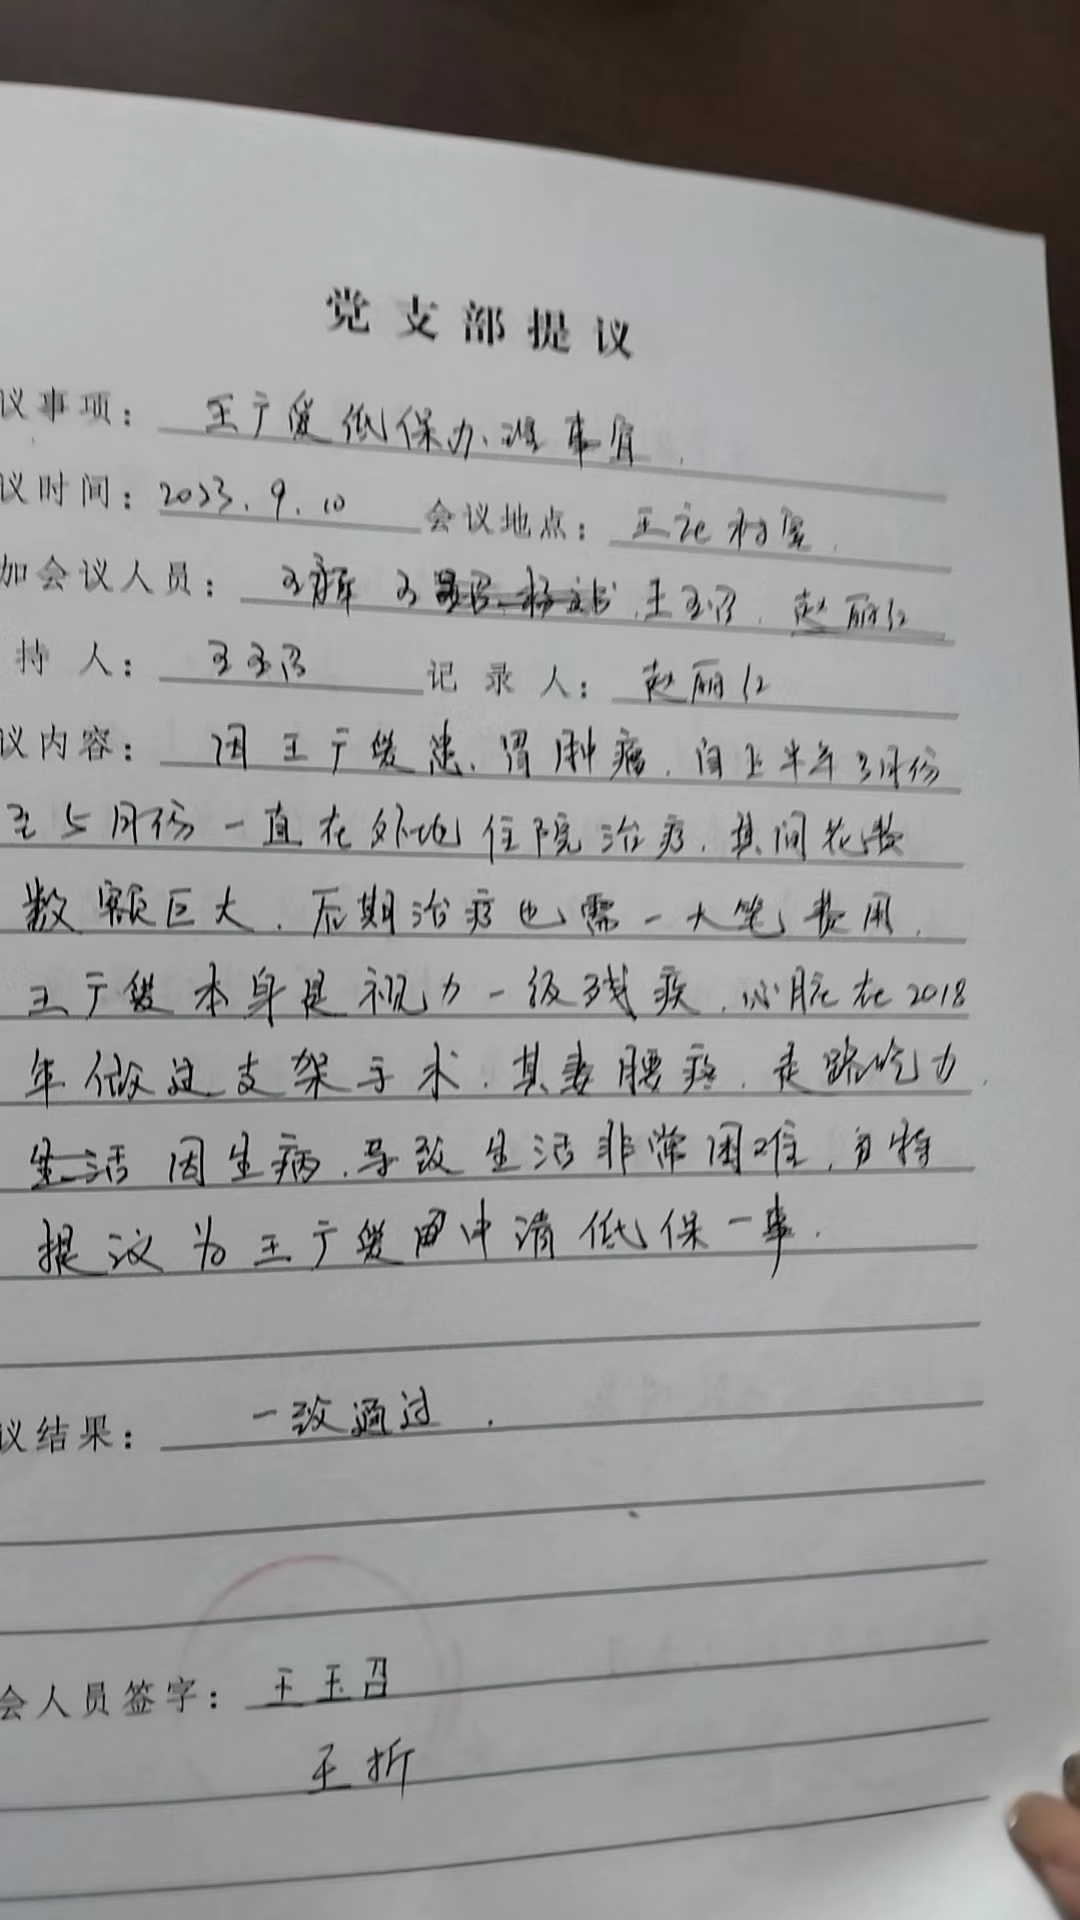 党支部提议
议事项：王广俊低保办理事宜.
议时间：2023.9.10 会议地点：王记村室.
加会议人员：王 王玉召. 赵丽红
持人：王玉召 记录人：赵丽红
议内容：因王广俊患胃肿瘤.自上半年3月份
至5月份一直在外地住院治疗.其间花费
数额巨大.后期治疗也需一大笔费用.
王广俊本身是视力一级残疾.心脏在2018
年做过支架手术.其妻腰疼.走路吃力.
生活因生病.导致生活非常困难.特
提议为王广俊申请低保一事.
议结果：一致通过.
会人员签字：王玉召
王折